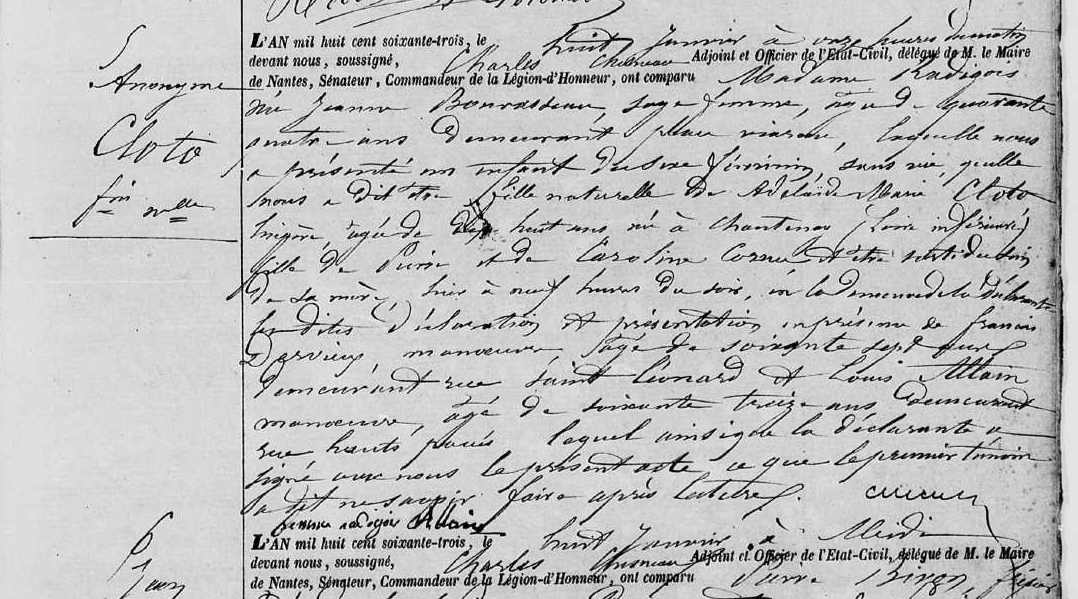 5
Anonyme
Cloto
fin nelle
L'AN mil huit cent soixante-trois, le huit Janvier à onze heures du matin
devant nous, soussigné, Charles Chesneau Adjoint et Officier de l'Etat-Civil, délégué de M. le Maire
de Nantes, Sénateur, Commandeur de la Légion-d'Honneur, ont comparu Madame Radigois
née Jeanne sage femme, âgée de quarante
quatre ans demeurant place viarme, laquelle nous
a présenté un enfant du sexe féminin, sans vie, qu'elle
nous a dit être fille naturelle de Adélaïde Marie Cloto
lingère, âgée de dix huit ans née à Chantenay (Loire inférieure)
fille de Pierre et de Caroline et être sorti du sein
de sa mère, hier à neuf heures du soir, en la demeure de la déclarante
les dites déclaration et présentation en présence de francois
manœuvre, âgé de soixante sept ans
demeurant rue saint léonard et Louis Allain
manœuvre, âgé de soixante treize ans demeurant
rue hauts pavés lequel ainsi que la déclarante a
signé avec nous le présent acte, ce que le premier témoin
a dit ne savoir faire après lecture.
femme radigois Allain
L'AN mil huit cent soixante-trois, le huit Janvier à Midi
devant nous, soussigné, Charles Chesneau Adjoint et Officier de l'Etat-Civil, délégué de M. le Maire
de Nantes, Sénateur, Commandeur de la Légion-d'Honneur, ont comparu Pierre
6